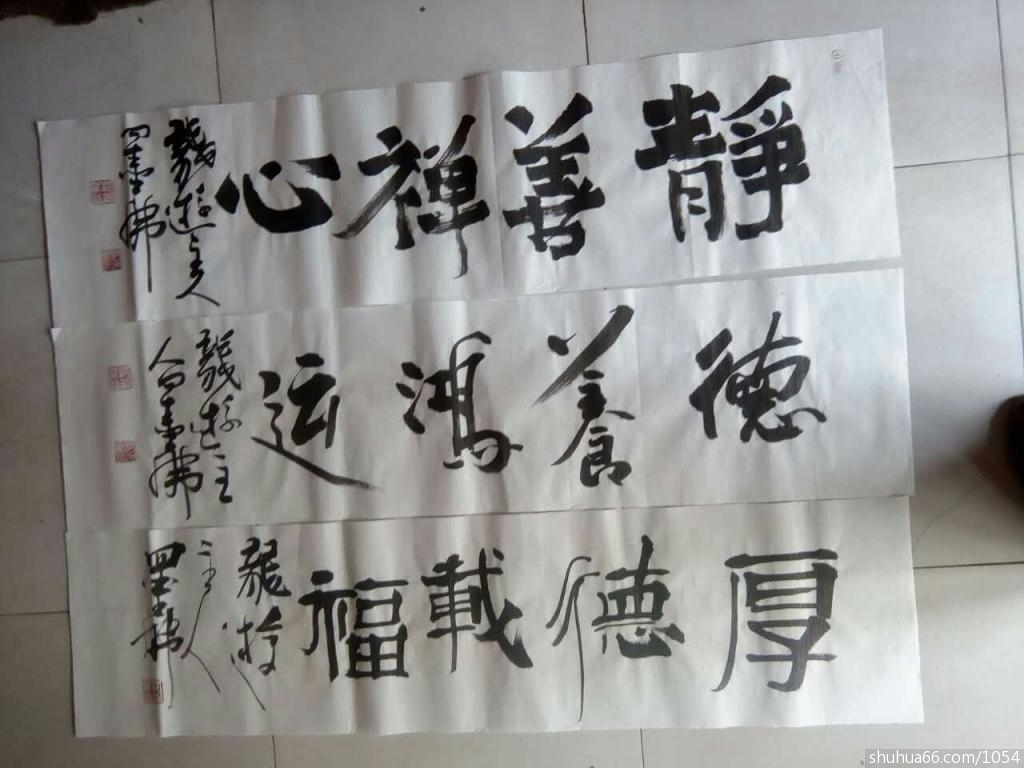 靜善禪心
龍游主人
墨弗
德養鴻運
龍游主
人墨弗
厚德載福
龍游
主人
墨弗
shuhua66.com/1054